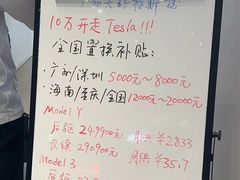 10万开走Tesla!!!
全国置换补贴:
·广州/深圳 5000元~8000元
·海南/重庆/全国 12000元~20000元
Model Y
后驱 249900元 月供 ¥2833
长续 290900元 月供 ¥3517
Model 3
后驱